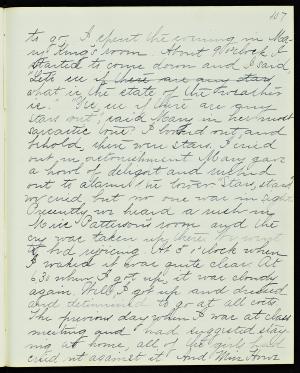 107
to go, I spent the evening in Ma-
ry King's room. About 9 o'clock I
started to come down and I said,
"Let's see if there are any stars
what is the state of the weather
is." "See if there are any
stars out", said Mary in her most
sarcastic tone. I looked out, and
behold, there were stars. I cried
out in astonishment. Mary gave
a howl of delight and rushed
out to the tower stairs,
we cried, but no one was in sight.
Presently we heard a rush in
Miss Patterson's room and the
cry was taken up there
rejoicing. At 5 o'clock when
I waked it was quite clear but
6:30 when I got up, it was cloudy
again. Well, I got up and dressed
and determined to go at all costs.
The previous day when I was at class
meeting and had suggested stay-
ing at home, all of the girls had
cried out against it. And Miss